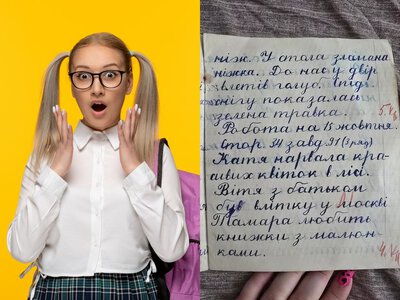 ніж. У стола зламана
ніжка. До нас у двір
влетів голуб. Під
снігу показалась
зелена травка.
Робота на 15 жовтня.
Стор. 34 завд 91 (3 ряд)
Катя нарвала кра-
сивих квіток в лісі.
Вітя з батьком
був влітку у Москві
Тамара любить
книжки з малюн-
ками.